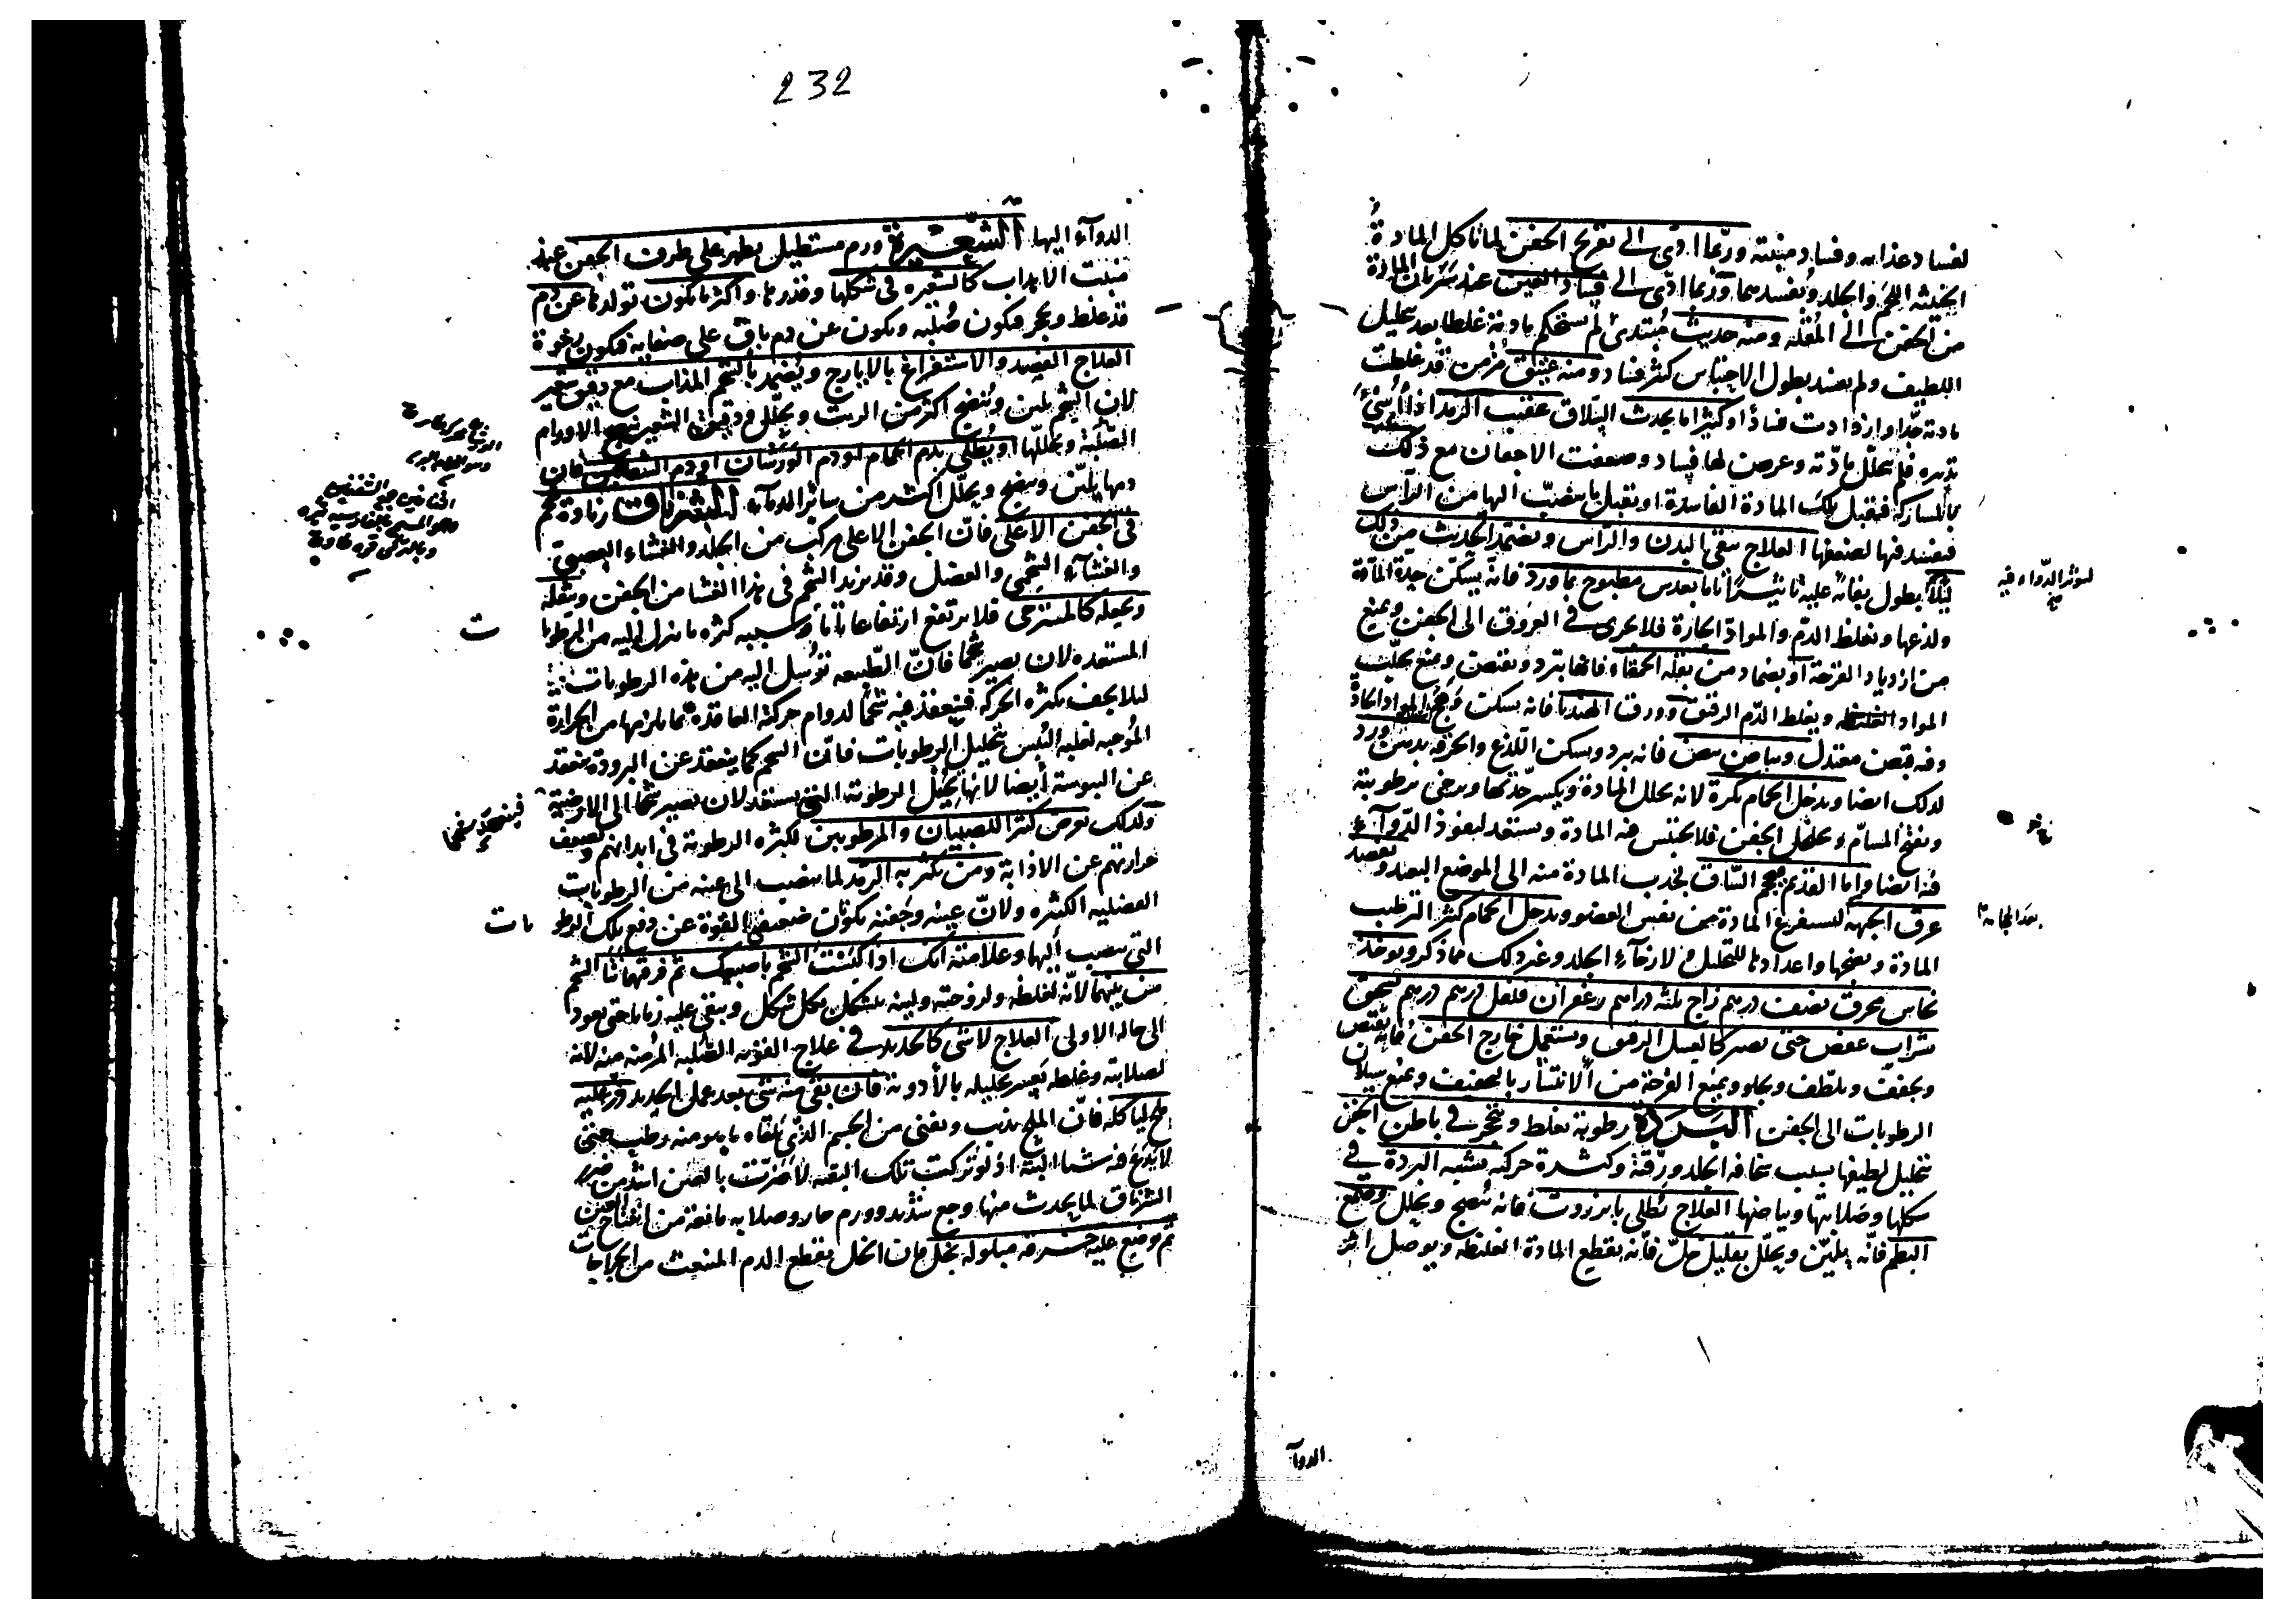 لفساد غذائه وفساد منبته وربما ادّى الى تقرح الجفن لما تاكل المادةُ
الخبيثه اللحم والجلد وتفسدهما وربما ادّى الى فساد العين عند سريان المادة
من الجفن الى المقلة ومنه حديث مبتدئ لم تستحكم مادته غلظا بعد تحليل
اللطيف ولم يفسد بطول الاحتباس كثر فساد ومنه عتيق مزمن قد غلظت
مادته جدّا وازدادت فسادًا وكثيرا ما يحدث السلاق عقيب الرمد اذا اسئ
تدبيره فلم تتحلل مادّته وعرض لها فساد وضعفت الاجفان مع ذلك
بالمشاركة فتقبل تلك المادة الفاسدة او تقبل ما ينصبّ اليها من الرأس
فيفسد فيها لضعفها العلاج ينقى البدن والراس ويضمد الحديث من ذلك
ليلًا بعدس مطبوخ بماورد فانه يسكّن حدة المادة
ولذعها ويغلظ الدم والمواد الحارة فلا تجرى فى العروق الى الجفن ويمنع
من ازدياد القرحة او بضماد من بقلة الحمقاء فانها تبرد وتقبض وتمنع تحلّب
المواد الغليظه ويغلظ الدّم الرقيق وورق الهندبا فانه يسكت وهج المواد الحادة
وفيه قبض معتدل وبياض بيض فانه يبرد ويسكن اللذع والحرقة بدهن ورد
لذلك ايضا ويدخل الحمام بكرة لانه يحلل المادة ويكسر حدّتها ويرخى برطوبته
ويفتح المسامّ ويخلخل الجفن فلا يحتبس فيه المادة ويستعد لنفوذ الدّوآء
فيه ايضا واما القديم فيحجم السّاق لجذب المادة منه الى الموضع البعيد ويفصد
عرق الجبهة لتستفرغ المادة من نفس العضو ويدخل الحمام كثيرا لترطيب
المادة ونضجها واعدادها للتحليل ولارخاء الجلد وغير ذلك مما ذكر ويوخذ
نحاس محرق نصف درهم زاج ثلثه دراهم زعفران فلفل درهم درهم يسحق
بشراب عفص حتى يصير كالعسل الرقيق ويستعمل خارج الجفن فانه يقبض
ويجفف ويلطف ويجلو ويمنع القرحة من الانتشار بالتجفيف ويمنع سيلان
الرطوبات الى الجفن البردة رطوبة تغلظ وتتحجر فى باطن الجفن
بتحليل لطيفها بسبب سخافة الجلد ورقّته وكثرة حركته تشبه البردة فى
شكلها وصلابتها وبياضها العلاج يطلى بانزروت فانه ينضج ويحلل وصمغ
البطم فانّه يليّن ويحلّل بقليل خلّ فانّه يقطع المادة الغليظه ويوصل اثر
ليوثر الدّواء فيه
بعد الحجامة
الدوآ
232
الدوآء اليها الشعيرة ورم مستطيل يظهر على طرف الجفن عند
منبت الاهداب كالشعيره فى شكلها وقدرها واكثر ما يكون تولدها عن دم
قد غلظ وتحجر فيكون صُلبه ويكون عن دم باق على صفايه فيكون رخوة
العلاج الفصد والاستفراغ بالايارج ويضمد بالشحم المذاب مع دقيق شعير
لان الشحم يلين وينضج اكثر من الزيت ويحلّل ودقيق الشعير ينضج الاورام
الصّلبة ويحللّها او يطلى بدم الحمام او دم الورشان او دم الشفانين فان
دمها يليّن وينضج ويحلّل اكثر من سائر الدماء الشرناق زيادة شحم
فى الجفن الاعلى فانّ الجفن الاعلى مركب من الجلد والغشاء العصبى
والغشآء الشحمى والعضل وقد يزيد الشحم فى هذا الغشا من الجفن ويثقله
ويجعله كالمسترخى فلا يرتفع ارتفاعا تامّا وسببه كثرة ما ينزل اليه من الرطوبا
ت
المستعده لان يصير شحما فانّ الطّبيعه ترسل اليه من هذه الرطوبات
لئلا يجف بكثرة الحركه فينعقد فيه شحمًا لدوام حركته العاقدة بما يلزمها من الحرارة
الموجبه لغلبة اليُبس بتحليل الرطوبات فانّ الشحم كما ينعقد عن البرودة ينعقد
عن اليبوسة أيضا لانها تحيل الرطوبة التى يستعد لان يصير شحما الى الارضية
ولذلك يعرض كثيرا للصبيان والمرطوبين لكثرة الرطوبة فى ابدانهم وضعف
حرارتهم عن الاذابة ومن يكثر به الرمد لما ينصب الى عينه من الرطوبات
الفضليه الكثيره ولانّ عينه وجفنه يكونان ضعيفى القوة عن دفع تلك الرطو
بات
التى تنصب اليها وعلامته انك اذا كبست الشحم باصبعيك ثم فرقتهما نتا الشحم
من بينهما لانّه لغلظه ولزوجته ولينه يتشكل بكل شكل ويبقى عليه زمانا حتى يعود
الى حاله الاولى العلاج لا شى كالحديد فى علاج القويه الصّلبه المزمنه منه لانه
لصلابته وغلظه يعسر تحليله بالأدوية فان بقى منه شى بعد عمل الحديد ذرّ عليه
ملح لياكله فانّ الملح يذيب ويفنى من الجسم الذى يلقاه ما هو منه رطب حتى
لا يدع فيه شيئا البتة اذ لو تركت تلك البقيه لاضرّت بالعين اشد من ضرر
الشرناق لما يحدث منها وجع شديد وورم حار وصلابه مانعة من انفتاح العين
ثم يوضع عليه خرقه مبلولة بخل فان الخل يقطع الدم المنبعث من الجراحات